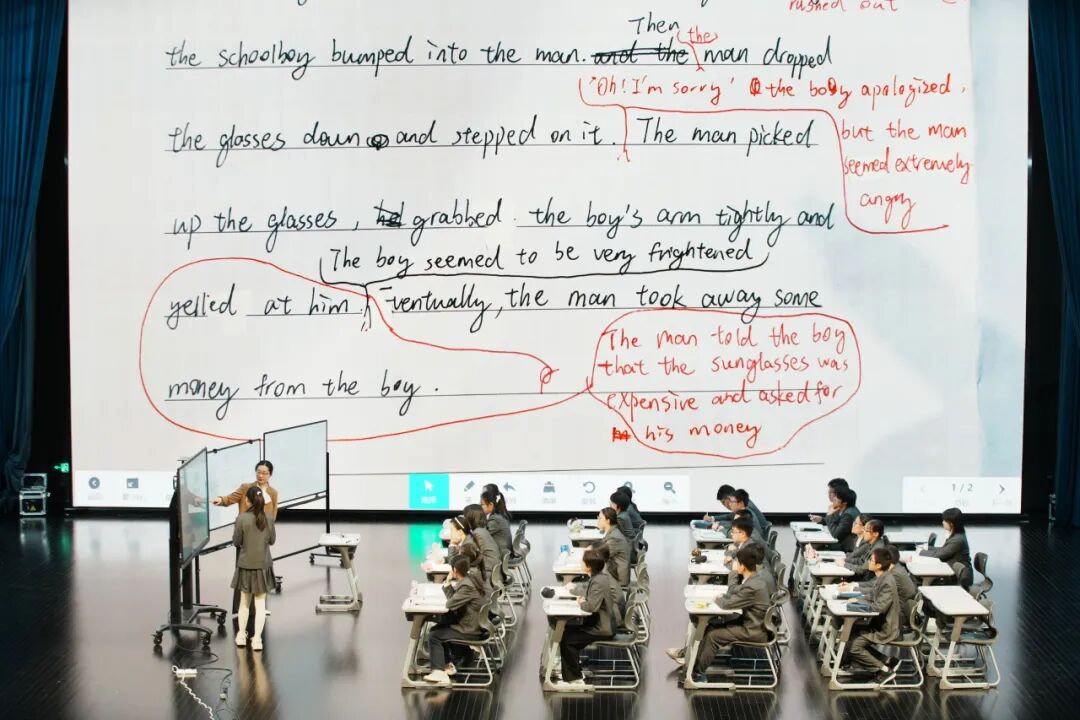 rushed out
Then the
the schoolboy bumped into the man. and the man dropped
"Oh! I'm sorry' the boy apologized,
the glasses down and stepped on it. The man picked
but the man
seemed extremely
angry
up the glasses, grabbed the boy's arm tightly and
The boy seemed to be very frightened
yelled at him. Eventually, the man took away some
The man told the boy
that the sunglasses was
expensive and asked for
his money
money from the boy.
1/2